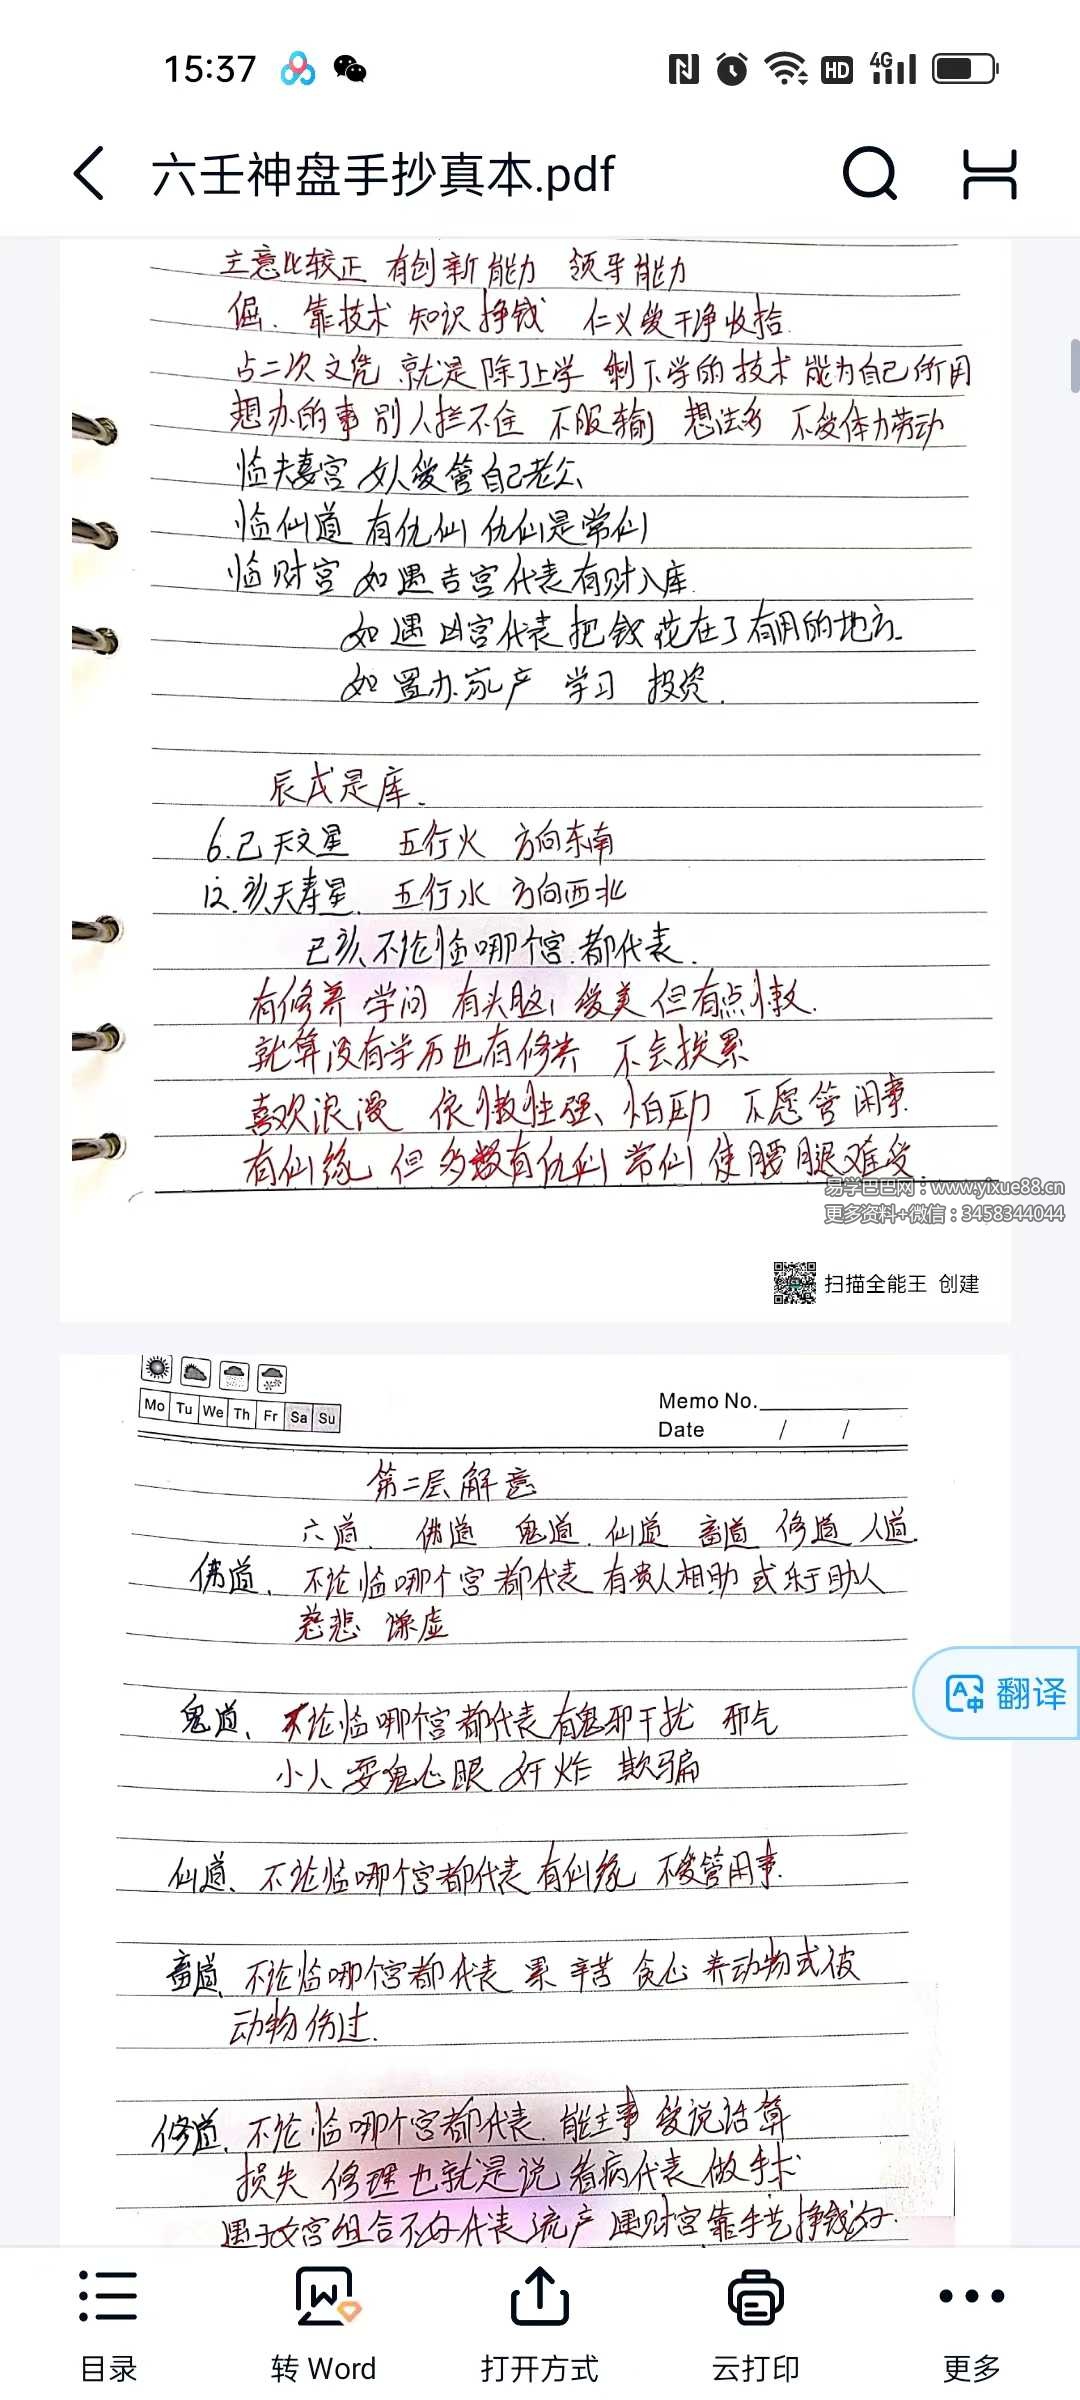 15:37
HD
4G
六壬神盘手抄真本.pdf
主意比较正 有创新能力 领导能力
倔、靠技术 知识挣钱 仁义爱干净收拾
占二次文凭 就是除了上学 剩下学的技术 能为自己所用
想办的事 别人拦不住 不服输 想法多 不爱体力劳动
临夫妻宫 女人爱管自己老公
临仙道 有仇仙 仇仙是常仙
临财宫 如遇吉宫代表有财入库.
如遇凶宫代表把钱花在了有用的地方.
如置办家产 学习 投资.
辰戌是库.
6.巳天文星 五行火 方向东南
12.亥天寿星 五行水 方向西北
巳亥不论临哪个宫.都代表.
有修养 学问 有头脑 爱美 但有点懒.
就算没有学历也有修养 不会挨累
喜欢浪漫 依懒性强、怕压力 不愿管闲事
有仙缘 但多数有仇仙 常仙 使腰腿难受
易学巴巴网：www.yixue88.cn
更多资料+微信：3458344044
扫描全能王 创建
Mo Tu We Th Fr Sa Su
Memo No.
Date / /
第二层解意
六道. 佛道 鬼道.仙道 畜道 修道 人道.
佛道、不论临哪个宫都代表 有贵人相助 或乐于助人
慈悲 谦虚
鬼道、不论临哪个宫都代表有鬼邪干扰 邪气
小人 耍鬼心眼 奸炸 欺骗
仙道、不论临哪个宫都代表有仙缘 不爱管闲事.
畜道、不论临哪个宫都代表 累 辛苦 贪心 养动物或被
动物伤过.
修道、不论临哪个宫都代表.能主事 爱说话算
损失 修理也就是说 看病代表做手术
遇子女宫组合不好代表流产 遇财宫靠手艺挣钱好.
翻译
目录
转 Word
打开方式
云打印
更多